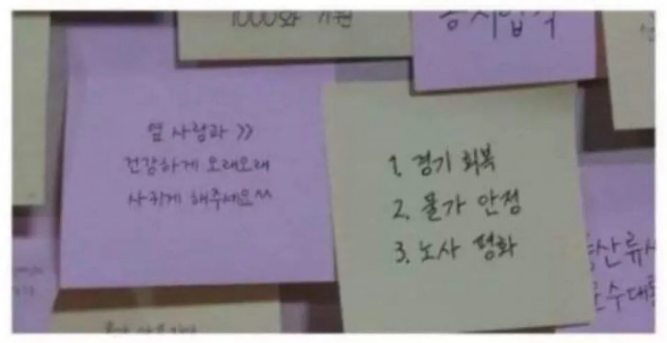 1000화 기원
옆 사람과 >>
건강하게 오래오래
사귀게 해주세요^^
1. 경기 회복
2. 물가 안정
3. 노사 평화